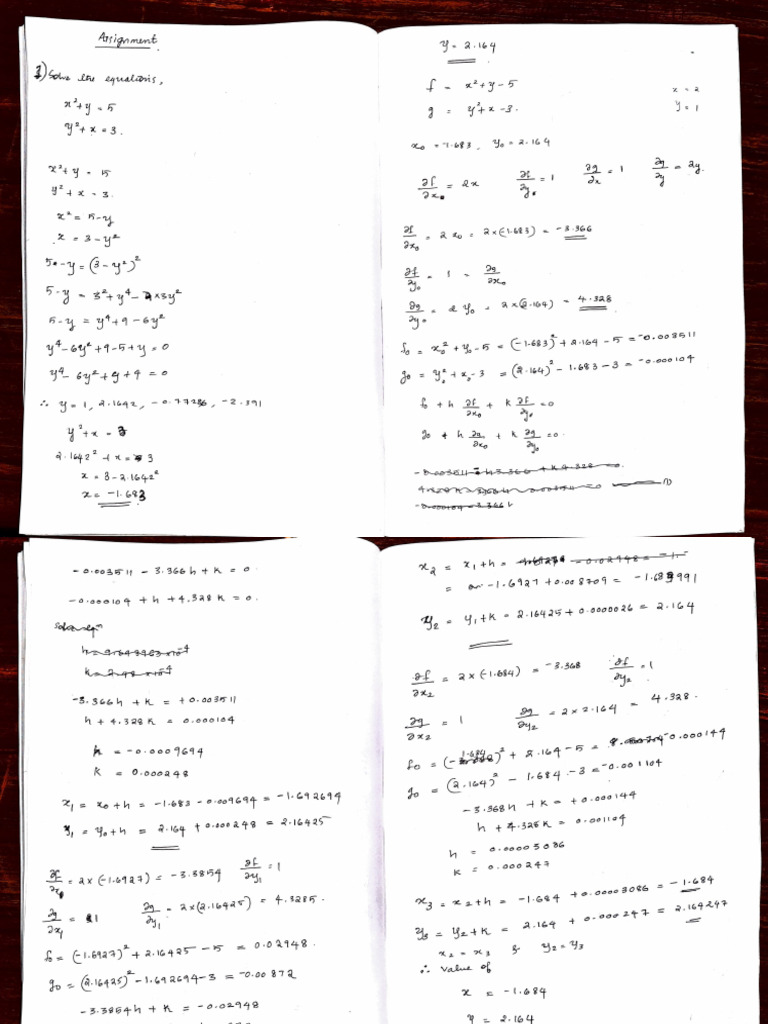 Assignment
1) Solve the equations,
x²+y = 5
y²+x = 3.
x²+y = 5
y²+x = 3.
x² = 5-y
x = 3-y²
5-y = (3-y²)²
5-y = 3²+y⁴-2×3y²
5-y = y⁴+9-6y²
y⁴-6y²+9-5+y=0
y⁴-6y²+y+4=0
∴ y=1, 2.1642, -0.77286, -2.391
y²+x = 3
2.1642²+x = 3
x = 3-2.1642²
x = -1.683
y = 2.164
f = x²+y-5
g = y²+x-3.
x = 2
y = 1
x₀ = 1.683, y₀ = 2.164
∂f/∂x = 2x ∂f/∂y = 1 ∂g/∂x = 1 ∂g/∂y = 2y.
∂f/∂x₀ = 2x₀ = 2×(-1.683) = -3.366
∂f/∂y₀ = 1 = ∂g/∂x₀
∂g/∂y₀ = 2y₀ = 2×(2.164) = 4.328
f₀ = x₀²+y₀-5 = (-1.683)²+2.164-5 = -0.003511
g₀ = y₀²+x₀-3 = (2.164)²-1.683-3 = -0.000104
f₀+h ∂f/∂x₀ + k ∂f/∂y₀=0
g₀+h ∂g/∂x₀ + k ∂g/∂y₀=0.
-0.003511 - 3.366h+k = 0.
-0.000104+h+4.328k = 0.
-3.366h+k = +0.003511
h+4.328k = 0.000104
h = -0.0009694
k = 0.000248
x₁ = x₀+h = -1.683-0.009694 = -1.692694
y₁ = y₀+h = 2.164+0.000248 = 2.16425
∂f/∂x₁ = 2×(-1.6927) = -3.3854 ∂f/∂y₁ = 1
∂g/∂x₁ = 1 ∂g/∂y₁ = 2×(2.16425) = 4.3285.
f₀ = (-1.6927)²+2.16425-5 = 0.02948.
g₀ = (2.16425)²-1.692694-3 = -0.00872
-3.3854h+k = -0.02948
x₂ = x₁+h =
= -1.6927+0.008709 = -1.683991
y₂ = y₁+k = 2.16425+0.0000026 = 2.164
∂f/∂x₂ = 2×(-1.684) = -3.368 ∂f/∂y₂ = 1
∂g/∂x₂ = 1 ∂g/∂y₂ = 2×2.164 = 4.328.
f₀ = (-1.684)²+2.164-5 = -0.000144
g₀ = (2.164)²-1.684-3 = -0.001104
-3.368h+k = +0.000144
h+4.328k = 0.001104
h = 0.00003086
k = 0.000247
x₃ = x₂+h = -1.684+0.00003086 = -1.684
y₃ = y₂+k = 2.164+0.000247 = 2.164247
x₂ = x₃ & y₂ = y₃
∴ value of
x = -1.684
y = 2.164